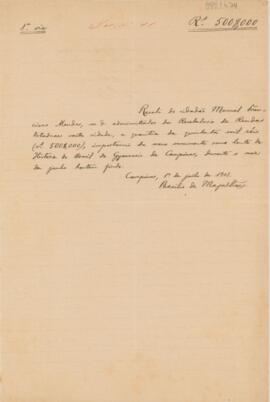 1ª via
Rs. 500$000
Recebi do cidadão Manoel Fran-
cisco Mendes, m. d. administrador da Recebedoria de Rendas
Estadoaes nesta cidade, a quantia de quinhentos mil réis
(Rs 500$000), importancia de meus vencimentos como lente de
Historia do Brasil do Gymnasio de Campinas, durante o mez
de junho hontem findo.
Campinas, 1º de julho de
Basilio de Magalhães